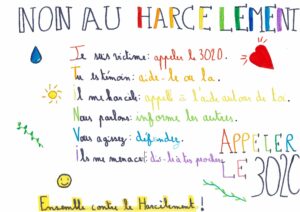 NON AU HARCELEMENT
Je sus victime: appeler le 3020.
Tu es témoin: aide-le ou la.
Il me harcèle: appelle à l'aide autour de toi.
Nous parlons: informe les autres.
Vous agissez: défendez.
Ils me menace: dis-le à tes proches
APPELER
LE
3020
Ensemble contre le Harcèlement !